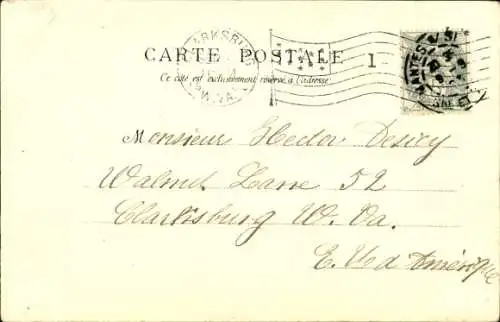 CLARKSBURG
W. VA.
CARTE POSTALE
1
Ce côté est exclusivement réservé à l'adresse
MANTES S
SNE ET
Monsieur Hector
Walnut Lane 52
Clarksburg W. Va.
E. U d'Amérique